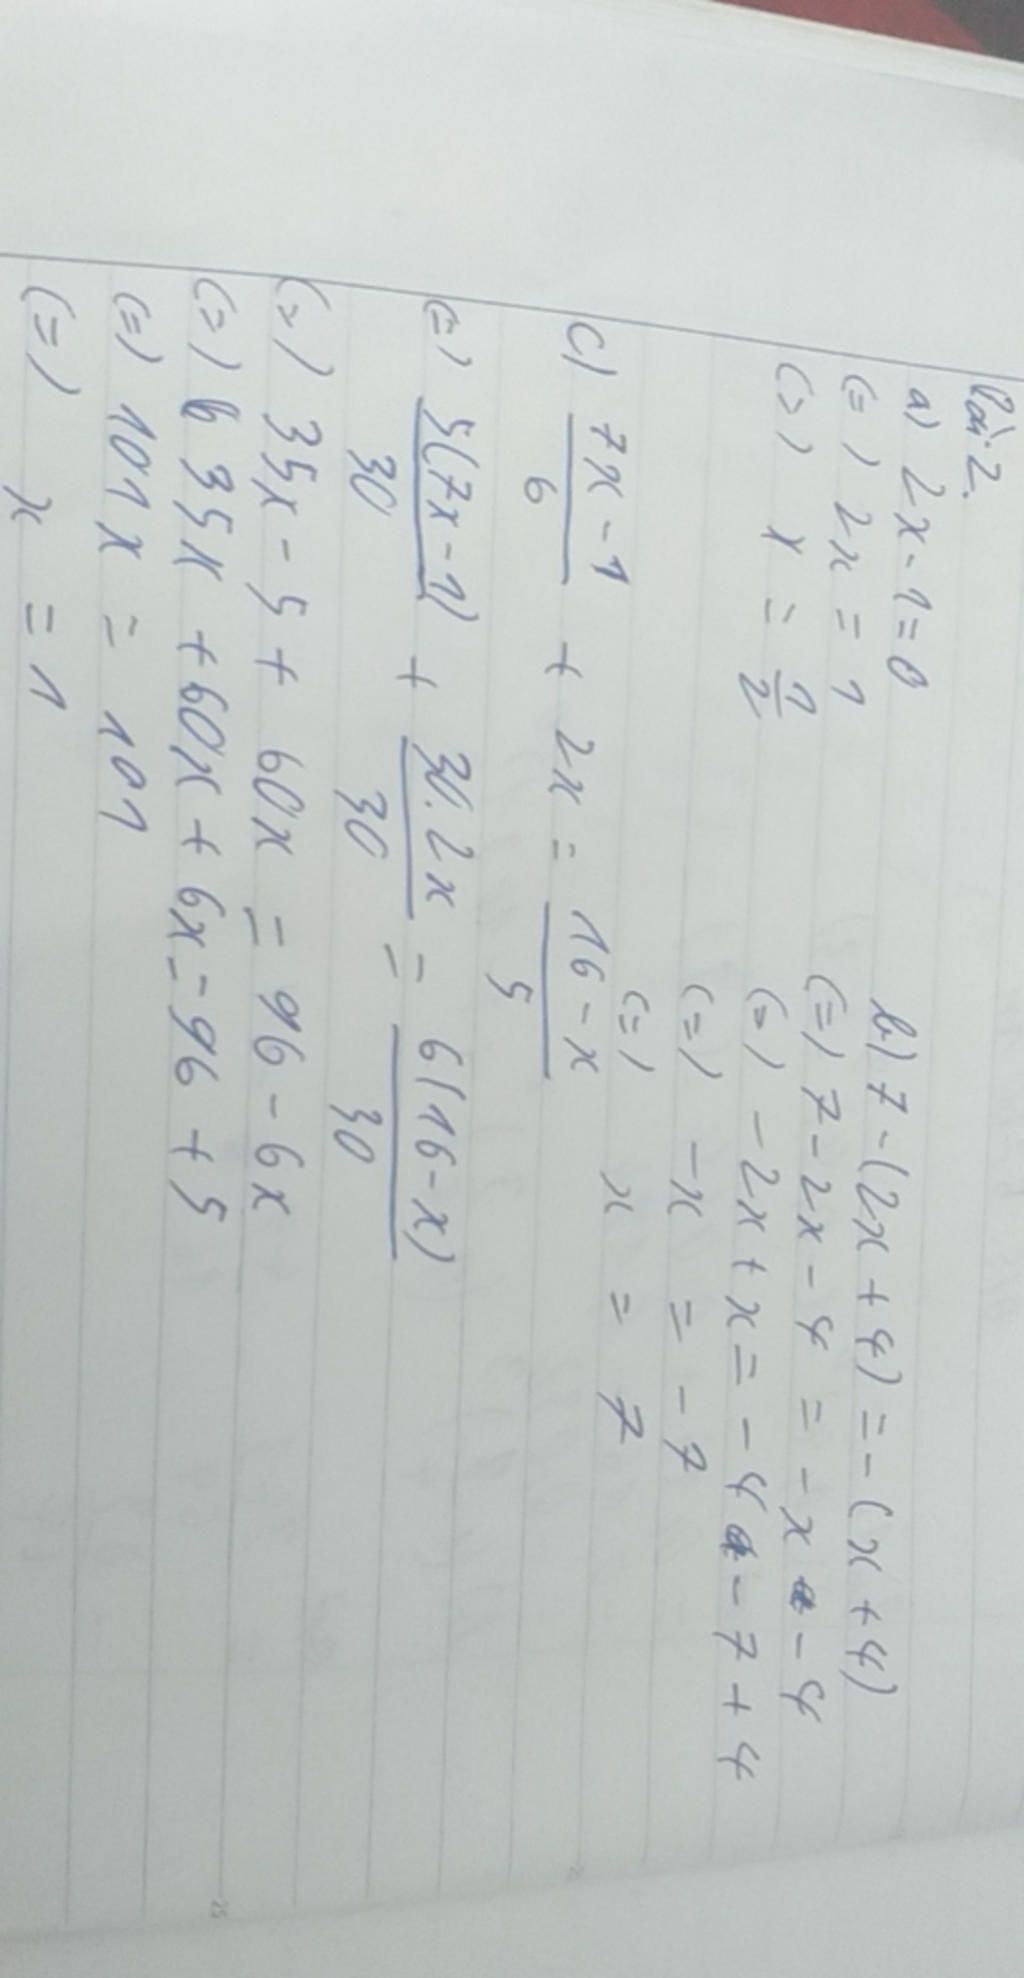 Bài 2.
a) 2x - 1 = 0
(=) 2x = 1
(=) x = 1/2
b) 7 - (2x + 4) = - (x + 4)
(=) 7 - 2x - 4 = - x - 4
(=) - 2x + x = - 4 - 7 + 4
(=) - x = - 7
(=) x = 7
c) 7x - 1 / 6 + 2x = 16 - x / 5
(=) 5(7x - 1) / 30 + 30.2x / 30 = 6(16 - x) / 30
(=) 35x - 5 + 60x = 96 - 6x
(=) 35x + 60x + 6x = 96 + 5
(=) 101x = 101
(=) x = 1
25